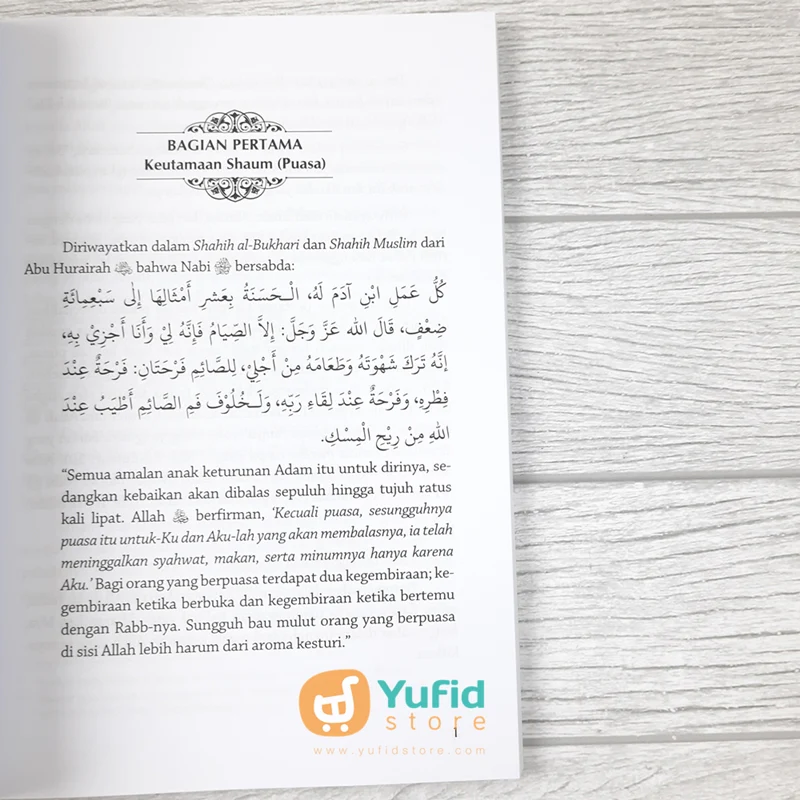 BAGIAN PERTAMA
Keutamaan Shaum (Puasa)
Diriwayatkan dalam Shahih al-Bukhari dan Shahih Muslim dari
Abu Hurairah bahwa Nabi ﷺ bersabda:
كُلُّ عَمَلِ ابْنِ آدَمَ لَهُ، الْـحَسَنَةُ بِعَشْرِ أَمْثَالِهَا إِلَى سَبْعِمِائَةِ
ضِعْفٍ، قَالَ الله عَزَّ وَجَلَّ: إِلاَّ الصِّيَامُ فَإِنَّهُ لِيْ وَأَنَا أَجْزِيْ بِهِ،
إِنَّهُ تَرَكَ شَهْوَتَهُ وَطَعَامَهُ مِنْ أَجْلِيْ، لِلصَّائِمِ فَرْحَتَانِ: فَرْحَةٌ عِنْدَ
فِطْرِهِ، وَفَرْحَةٌ عِنْدَ لِقَاءِ رَبِّهِ، وَلَـخُلُوْفَ فَمِ الصَّائِمِ أَطْيَبُ عِنْدَ
اللهِ مِنْ رِيْحِ الْمِسْكِ.
“Semua amalan anak keturunan Adam itu untuk dirinya, se-
dangkan kebaikan akan dibalas sepuluh hingga tujuh ratus
kali lipat. Allah berfirman, ‘Kecuali puasa, sesungguhnya
puasa itu untuk-Ku dan Aku-lah yang akan membalasnya, ia telah
meninggalkan syahwat, makan, serta minumnya hanya karena
Aku.’ Bagi orang yang berpuasa terdapat dua kegembiraan; ke-
gembiraan ketika berbuka dan kegembiraan ketika bertemu
dengan Rabb-nya. Sungguh bau mulut orang yang berpuasa
di sisi Allah lebih harum dari aroma kesturi.”
Yufid
store
1
www.yufidstore.com